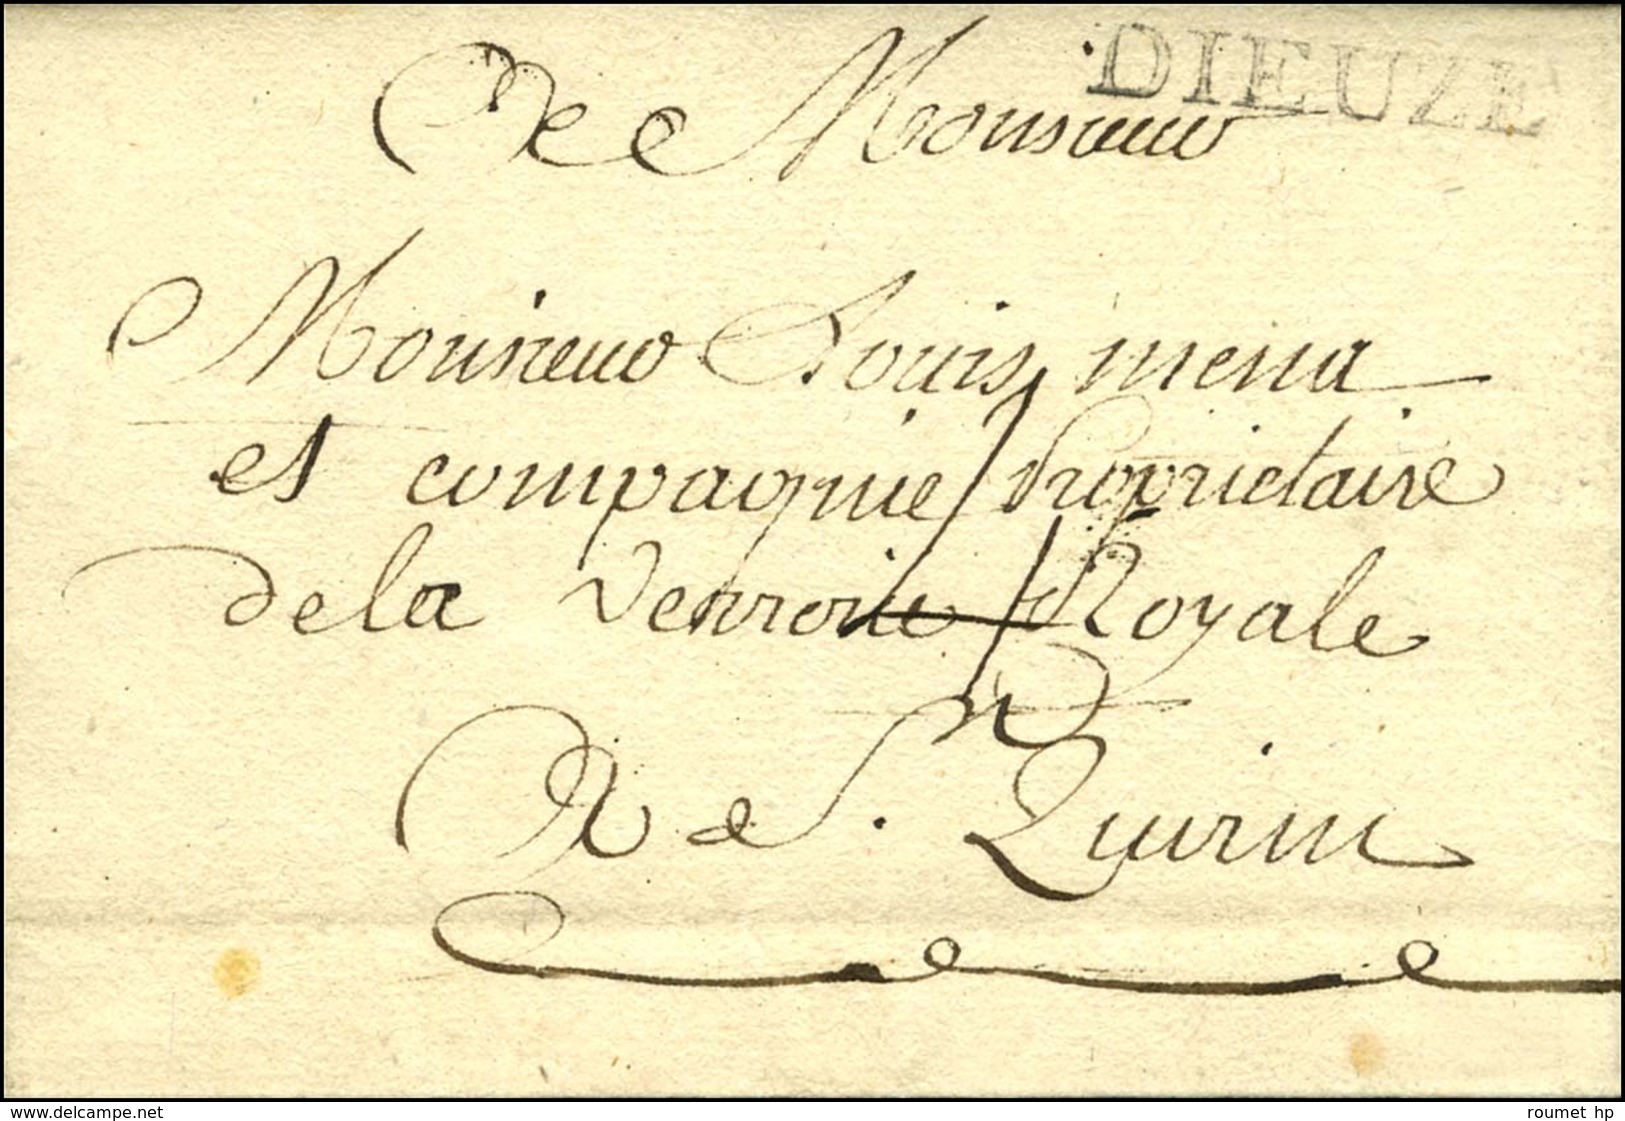 DIEUZE
Monsieur
Monsieur Louis mena
et compagnie Proprietaire
de la Verroiie Royale
A de St. Quirin
www.delcampe.net
roumet hp